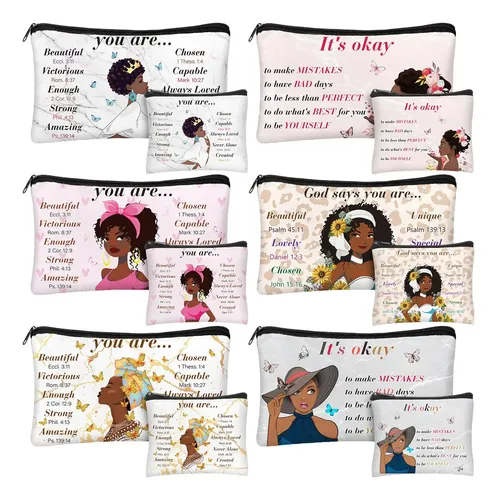 you are...
Beautiful
Eccl. 3:11
Victorious
Rom. 8:37
Enough
2 Cor. 12:9
Strong
Phil. 4:13
Amazing
Ps. 139:14
Chosen
1 Thess. 1:4
Capable
Mark 10:27
Always Loved
you are...
Beautiful
Victorious
Enough
Strong
Amazing
Chosen
Capable
Always Loved
Never Alone
Created
It's okay
to make MISTAKES
to have BAD days
to be less than PERFECT
to do what's BEST for you
to be YOURSELF
It's okay
to make MISTAKES
to have BAD days
to be less than PERFECT
to do what's BEST for you
to be YOURSELF
you are...
Beautiful
Eccl. 3:11
Victorious
Rom. 8:37
Enough
2 Cor. 12:9
Strong
Phil. 4:13
Amazing
Ps. 139:14
Chosen
1 Thess. 1:4
Capable
Mark 10:27
Always Loved
you are...
Beautiful
Victorious
Enough
Strong
Amazing
Chosen
Capable
Always Loved
Never Alone
Created
God says you are...
Beautiful
Psalm 45:11
Lovely
Daniel 12:3
Chosen
John 15:16
Unique
Psalm 139:13
Special
God says you are...
Beautiful
Lovely
Chosen
Unique
Special
you are...
Beautiful
Eccl. 3:11
Victorious
Rom. 8:37
Enough
2 Cor. 12:9
Strong
Phil. 4:13
Amazing
Ps. 139:14
Chosen
1 Thess. 1:4
Capable
Mark 10:27
Always Loved
you are...
Beautiful
Victorious
Enough
Strong
Amazing
Chosen
Capable
Always Loved
Never Alone
Created
It's okay
to make MISTAKES
to have BAD days
to be less than PERFECT
to do what's
to be YOURSELF
It's okay
to make MISTAKES
to have BAD days
to be less than PERFECT
to do what's BEST for you
to be YOURSELF